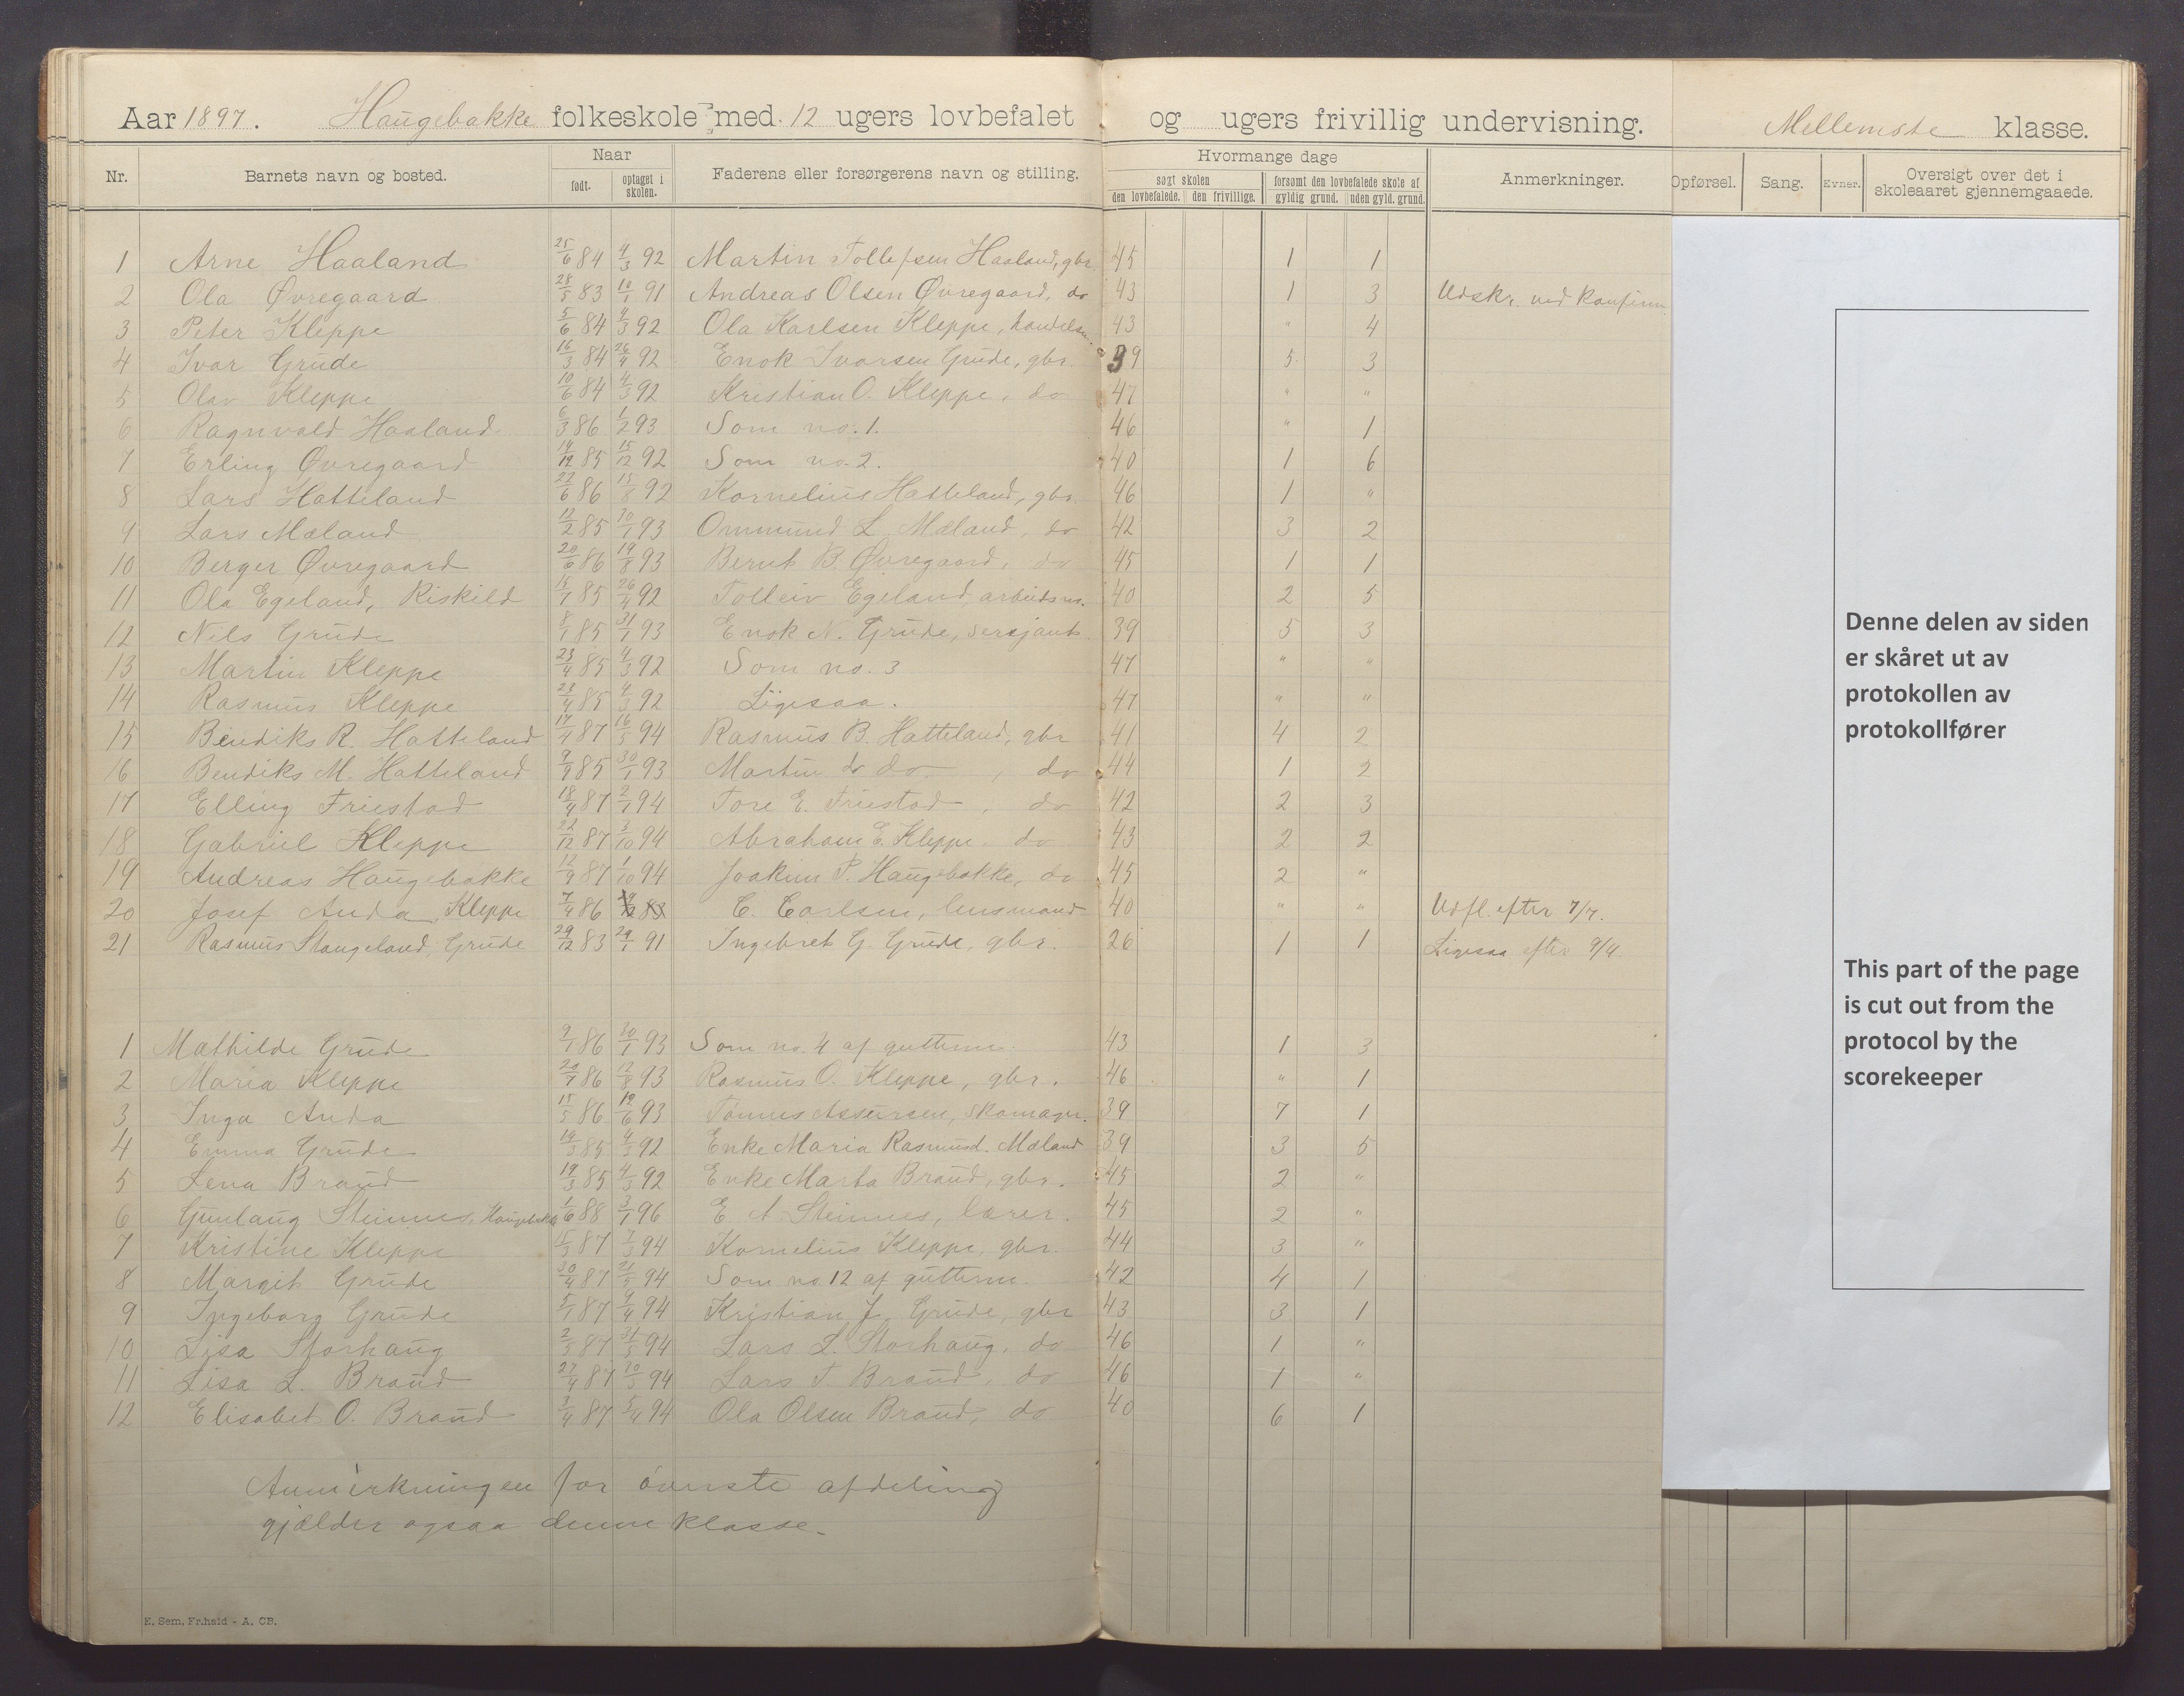 Aar 1897. Haugebakke folkeskole med 12 ugers lovbefalet og ugers frivillig undervisning. Mellemste klasse.
Nr. Barnets navn og bosted. Naar født. optaget i skolen. Faderens eller forsørgerens navn og stilling. Hvormange dage søgt skolen den lovbefalede. den frivillige. forsømt den lovbefalede skole af gyldig grund. uden gyld. grund. Anmerkninger. Opførsel. Sang. Evner. Oversigt over det i skoleaaret gjennemgaaede.
1 Arne Haaland 25/6 84 4/3 92 Martin Tollefsen Haaland, gbr. 45 1 1
2 Ola Øvregaard 28/5 83 10/1 91 Andreas Olsen Øvregaard, do 43 1 3 Udskr. ved konfirm.
3 Peter Kleppe 5/6 84 4/3 92 Ola Karlsen Kleppe, handelsm. 43 " 4
4 Ivar Grude 16/3 84 26/4 92 Enok Ivarsen Grude, gbr. 39 5 3
5 Olav Kleppe 10/6 84 4/3 92 Kristian O. Kleppe, do 47 " "
6 Ragnvald Haaland 6/3 86 1/2 93 Som no. 1. 46 " 1
7 Erling Øvregaard 14/12 85 15/12 92 Som no. 2. 40 1 6
8 Lars Hatteland 22/6 86 15/8 92 Kornelius Hatteland, gbr. 46 1 "
9 Lars Mæland 12/2 85 10/1 93 Ommund L. Mæland, do 42 3 2
10 Berger Øvregaard 20/6 86 19/8 93 Bernt B. Øvregaard, do 45 1 1
11 Ola Egeland, Riskild 15/1 85 26/4 92 Tolleiv Egeland, arbeidsm. 40 2 5
12 Nils Grude 8/1 85 31/1 93 Enok N. Grude, sersjant 39 5 3
13 Martin Kleppe 23/4 85 4/3 92 Som no. 3 47 " "
14 Rasmus Kleppe 23/4 85 4/3 92 Ligesaa. 47 " "
15 Bendiks R. Hatteland 17/4 87 16/5 94 Rasmus B. Hatteland, gbr 41 4 2
16 Bendiks M. Hatteland 9/9 85 30/1 93 Martin do do, do 44 1 2
17 Elling Friestad 18/4 87 2/1 94 Tore E. Friestad, do 42 2 3
18 Gabriel Kleppe 22/12 87 3/10 94 Abraham E. Kleppe, do 43 2 2
19 Andreas Haugebakke 12/9 87 1/10 94 Joakim P. Haugebakke, do 45 2 "
20 Josef Anda, Kleppe 7/4 86 C. Carlsen, lensmand 40 " " Udfl. efter 7/7.
21 Rasmus Stangeland, Grude 29/12 83 29/1 91 Ingebret G. Grude, gbr. 26 1 1 Ligesaa efter 9/4.
1 Mathilde Grude 9/1 86 10/1 93 Som no. 4 af gutterne. 43 1 3
2 Maria Kleppe 20/7 86 12/8 93 Rasmus O. Kleppe, gbr. 46 " 1
3 Inga Anda 15/5 86 12/6 93 Tønnes Assersen, skomager. 39 7 1
4 Emma Grude 19/3 85 4/3 92 Enke Maria Rasmusd. Mæland 39 3 5
5 Lena Braud 19/3 85 4/3 92 Enke Marta Braud, gbr. 45 2 "
6 Gunlaug Steinnes, Haugebakke 1/6 88 3/1 96 E. A. Steinnes, lærer. 45 2 "
7 Kristine Kleppe 15/3 87 7/3 94 Kornelius Kleppe, gbr. 44 3 "
8 Margit Grude 30/4 87 21/5 94 Som no. 12 af gutterne. 42 4 1
9 Ingeborg Grude 5/1 87 9/4 94 Kristian J. Grude, gbr 43 3 1
10 Lisa Storhaug 2/5 87 31/5 94 Lars L. Storhaug, do 46 1 "
11 Lisa L. Braud 27/4 87 10/5 94 Lars T. Braud, do 46 1 "
12 Elisabet O. Braud 3/4 87 5/4 94 Ola Olsen Braud, do 40 6 1
Anmerkningen for øverste afdeling
gjælder ogsaa denne klasse.
E. Sem, Fr.hald - A. CB.
Denne delen av siden
er skåret ut av
protokollen av
protokollfører
This part of the page
is cut out from the
protocol by the
scorekeeper